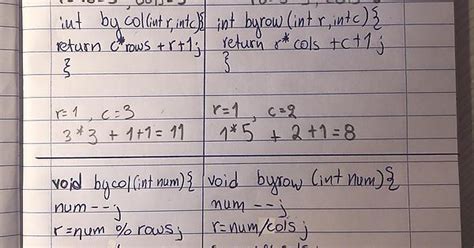 int bycol(int r, int c){
return c*rows + r+1;
}
r=1 , c=3
3*3 + 1+1 = 11
int byrow (int r, int c){
return r*cols +c+1;
}
r=1 , c=2
1*5 + 2+1=8
void bycol(int num){
num--;
r=num % rows;
void byrow (int num){
num--;
r=num/cols;